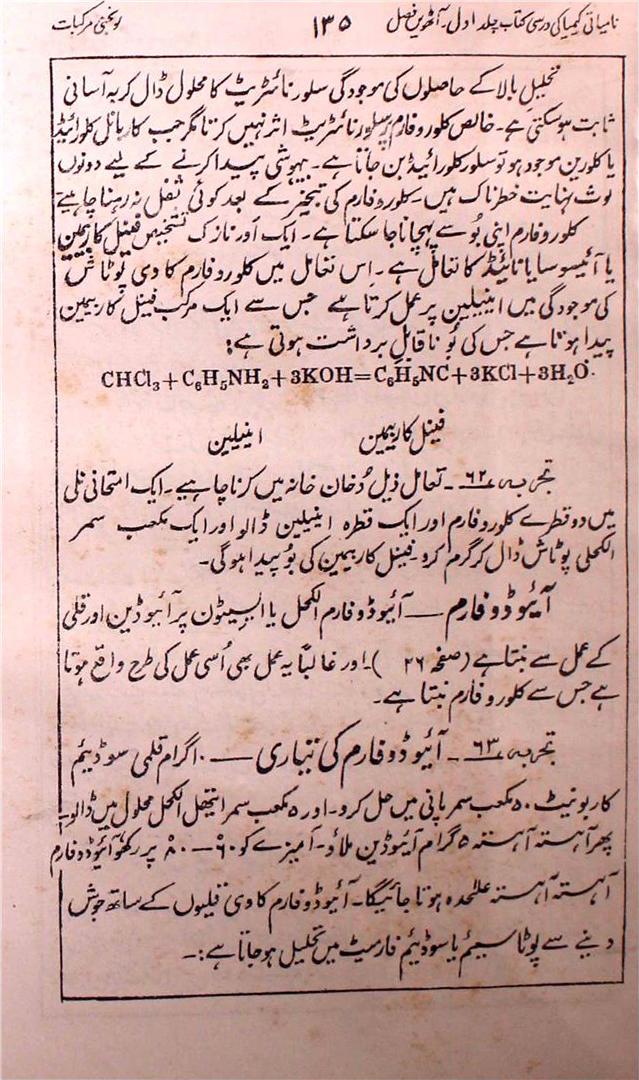 نامیاتی کیمیا کی درسی کتاب جلد اول۔ آٹھویں فصل ۱۳۵ لونجنی مرکبات
تحلیلِ بالا کے حاصلوں کی موجودگی سلور نائٹریٹ کا محلول ڈال کر بہ آسانی
ثابت ہوسکتی ہے۔ خالص کلوروفارم پر سلور نائٹریٹ اثر نہیں کرتا مگر جب کاربانل کلورائیڈ
یا کلورین موجود ہو تو سلور کلورائیڈ بن جاتا ہے۔ بیہوشی پیدا کرنے کے لیے دونوں
لوث نہایت خطرناک ہیں۔ کلوروفارم کی تبخیر کے بعد کوئی ثفل نہ رہنا چاہیے
کلوروفارم اپنی بُو سے پہچانا جاسکتا ہے۔ ایک اور نازک تشخیص فینل کاربیمین
یا آئیسوسایانائیڈ کا تعامل ہے۔ اِس تعامل میں کلوروفارم کاوی پوٹاش
کی موجودگی میں اینیلین پر عمل کرتا ہے جس سے ایک مرکب فینل کاربیمین
پیدا ہوتا ہے جس کی بُو ناقابلِ برداشت ہوتی ہے:
CHCl₃+C₆H₅NH₂+3KOH=C₆H₅NC+3KCl+3H₂O.
فینل کاربیمین اینیلین
تجربہ ۶۲۔ تعامل ذیل دُخان خانہ میں کرنا چاہیے۔ ایک امتحانی نلی
میں دو قطرے کلوروفارم اور ایک قطرہ اینیلین ڈالو اور ایک مکعب سمر
الکحلی پوٹاش ڈال کر گرم کرو۔ فینل کاربیمین کی بُو پیدا ہوگی۔
آئیوڈوفارم — آئیوڈوفارم الکحل یا ایسیٹون پر آئیوڈین اور قلی
کے عمل سے بنتا ہے (صفحہ ۲۶ )۔ اور غالباً یہ عمل بھی اُسی عمل کی طرح واقع ہوتا
ہے جس سے کلوروفارم بنتا ہے۔
تجربہ ۶۳۔ آئیوڈوفارم کی تیاری — ۱۰ گرام قلمی سوڈیئم
کاربونیٹ ۵۰ مکعب سمر پانی میں حل کرو۔ اور ۵ مکعب سمر ایتھل الکحل محلول میں ڈالو۔
پھر آہستہ آہستہ ۵ گرام آئیوڈین ملاؤ۔ آمیزے کو ۶۰°—۸۰° پر رکھو آئیوڈوفارم
آہستہ آہستہ علٰحدہ ہوتا جائیگا۔ آئیوڈوفارم کاوی قلیوں کے ساتھ جوش
دینے سے پوٹاسیئم یا سوڈیئم فارمیٹ میں تحلیل ہوجاتا ہے:۔